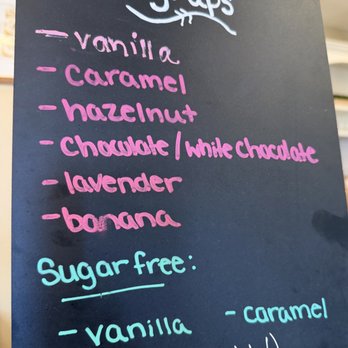 - vanilla
- caramel
- hazelnut
- Chocolate / white chocolate
- lavender
- banana
Sugar free:
- vanilla - caramel